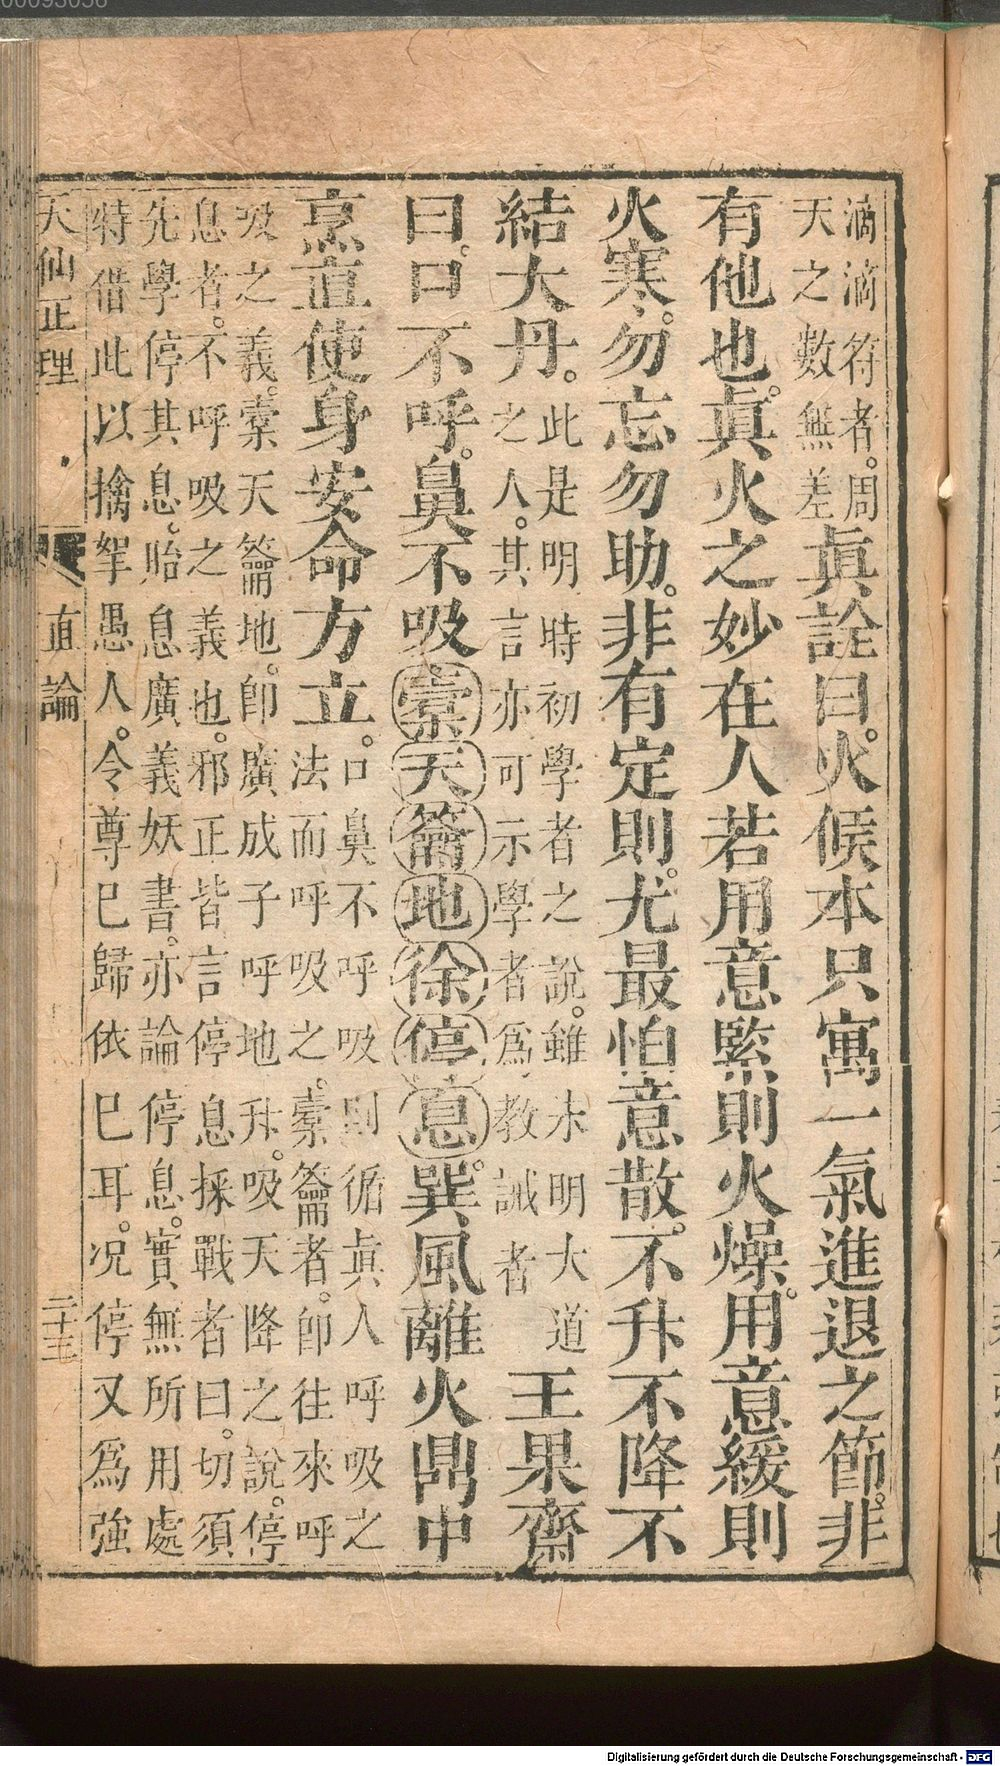 滴滴符者。周
天之數無差
眞詮曰。火候本只寓一氣進退之節。非
有他也。眞火之妙在人若用意緊則火燥。用意緩則
火寒。勿忘勿助。非有定則。尤最怕意散。不升不降不
結大丹。
此是明時初學者之說。雖未明大道
之人。其言亦可示學者爲教誡者
王果齋
曰。口不呼。鼻不吸橐天籥地徐停息。巽風離火鼎中
烹直使身安命方立。
口鼻不呼吸則循眞人呼吸之
法而呼吸之。橐籥者。卽往來呼
吸之義。橐天籥地。卽廣成子呼地升。吸天降之說。停
息者。不呼吸之義也。邪正皆言停息採戰者曰。切須
先學停其息。貽息廣義妖書。亦論停息。實無所用處
特借此以擒拏愚人。令尊巳歸依巳耳。况停又爲強
天仙正理
直論
二十三
00093056
Digitalisierung gefördert durch die Deutsche Forschungsgemeinschaft - DFG